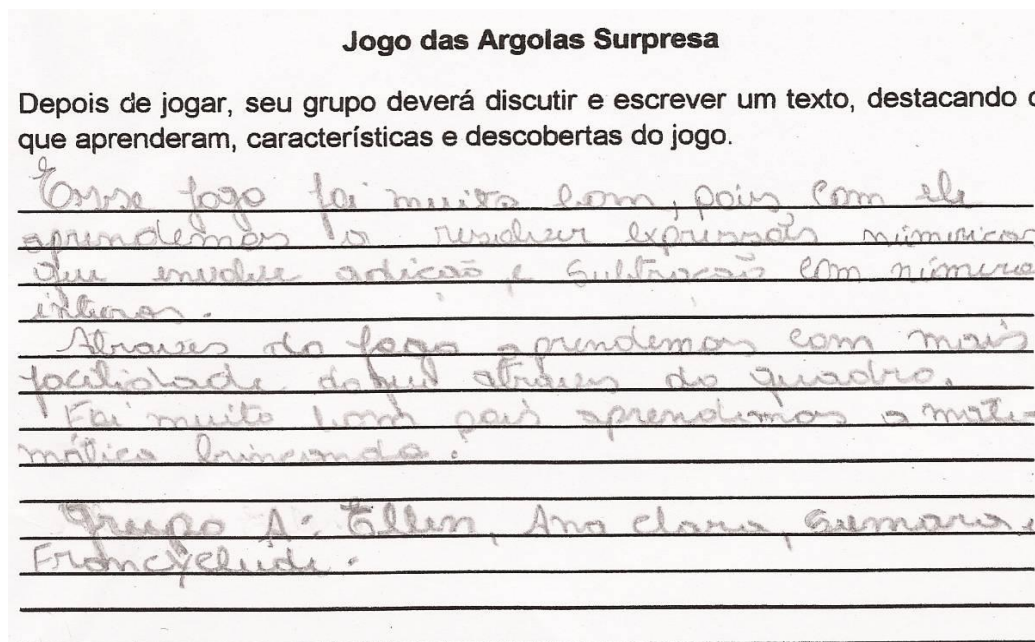 Jogo das Argolas Surpresa
Depois de jogar, seu grupo deverá discutir e escrever um texto, destacando o
que aprenderam, características e descobertas do jogo.
Esse jogo foi muito bom, pois com ele
aprendemos a resolver expressões númericas
que envolve adição e subtração com número
inteiros.
Atraves do jogo aprendemos com mais
facilidade do que atraves do quadro.
Foi muito bom pois aprendemos a mate-
mática brincando.
Grupo A: Ellen, Ana clara,